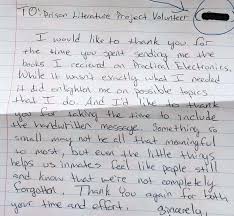 TO: Prison Literature Project Volunteer
I would like to thank you for
the time you spent sending me the
books I recieved on Practical Electronics.
While it wasn't exactly what I needed
it did enlighten me on possible topics
that I do. And I'd like to thank
you for taking the time to include
the handwritten message. Something so
small may not be all that meaningful
to most, but even the little things
helps us inmates feel like people still
and know that we're not completely
forgotten. Thank You again for both
your time and effort. Sincerely,